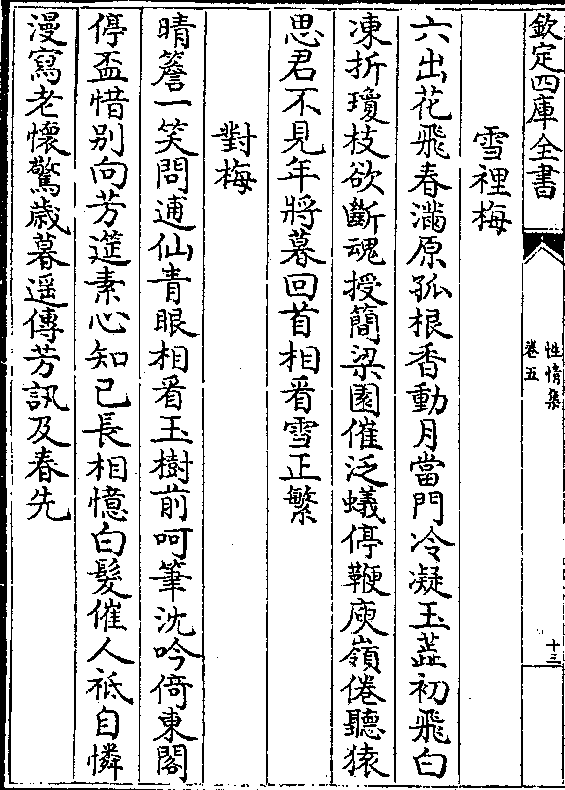 欽定四庫全書
性情集
卷五
十三
雪裡梅
六出花飛春滿原孤根香動月當門冷凝玉蘂初飛白
凍折瓊枝欲斷魂授簡梁園催泛蟻停鞭庾嶺倦聽猿
思君不見年將暮回首相看雪正繁
對梅
晴簷一笑問逋仙青眼相看玉樹前呵筆沈吟倚東閣
停盃惜别向芳筵素心知己長相憶白髮催人祗自憐
漫寫老懷驚歲暮遥傳芳訊及春先